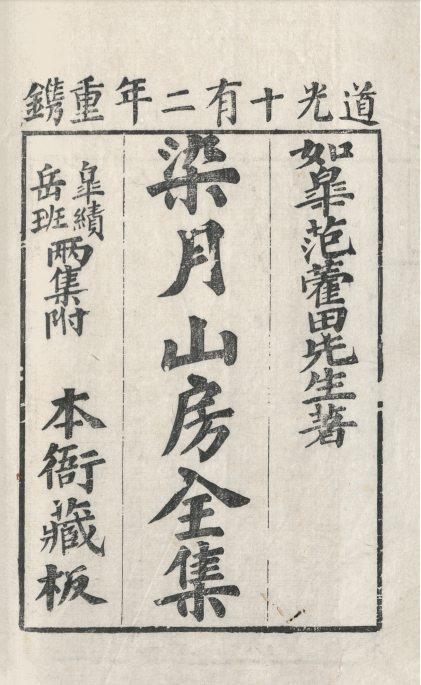 道光十有二年重鐫
如皐范藿田先生著
染月山房全集
皐績
岳班
兩集附
本衙藏板